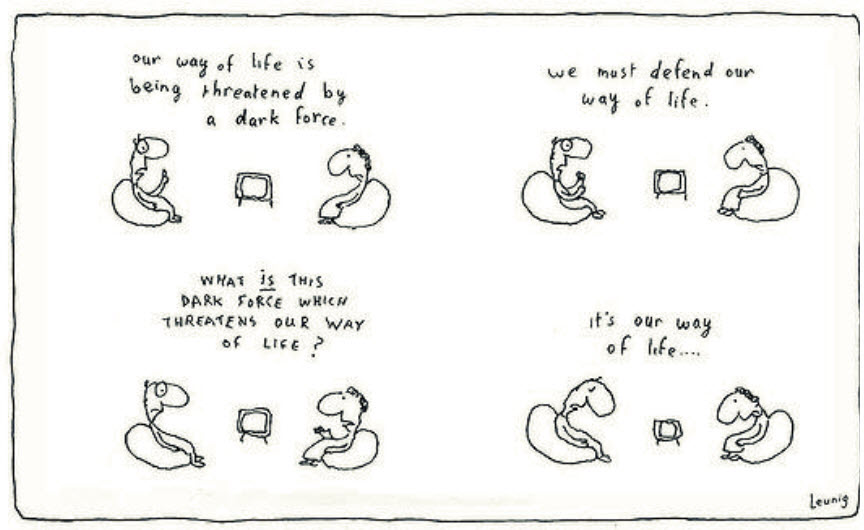 our way of life is
being threatened by
a dark force.
we must defend our
way of life.
WHAT is THIS
DARK FORCE WHICH
THREATENS OUR WAY
OF LIFE?
it's our way
of life....
Leunig